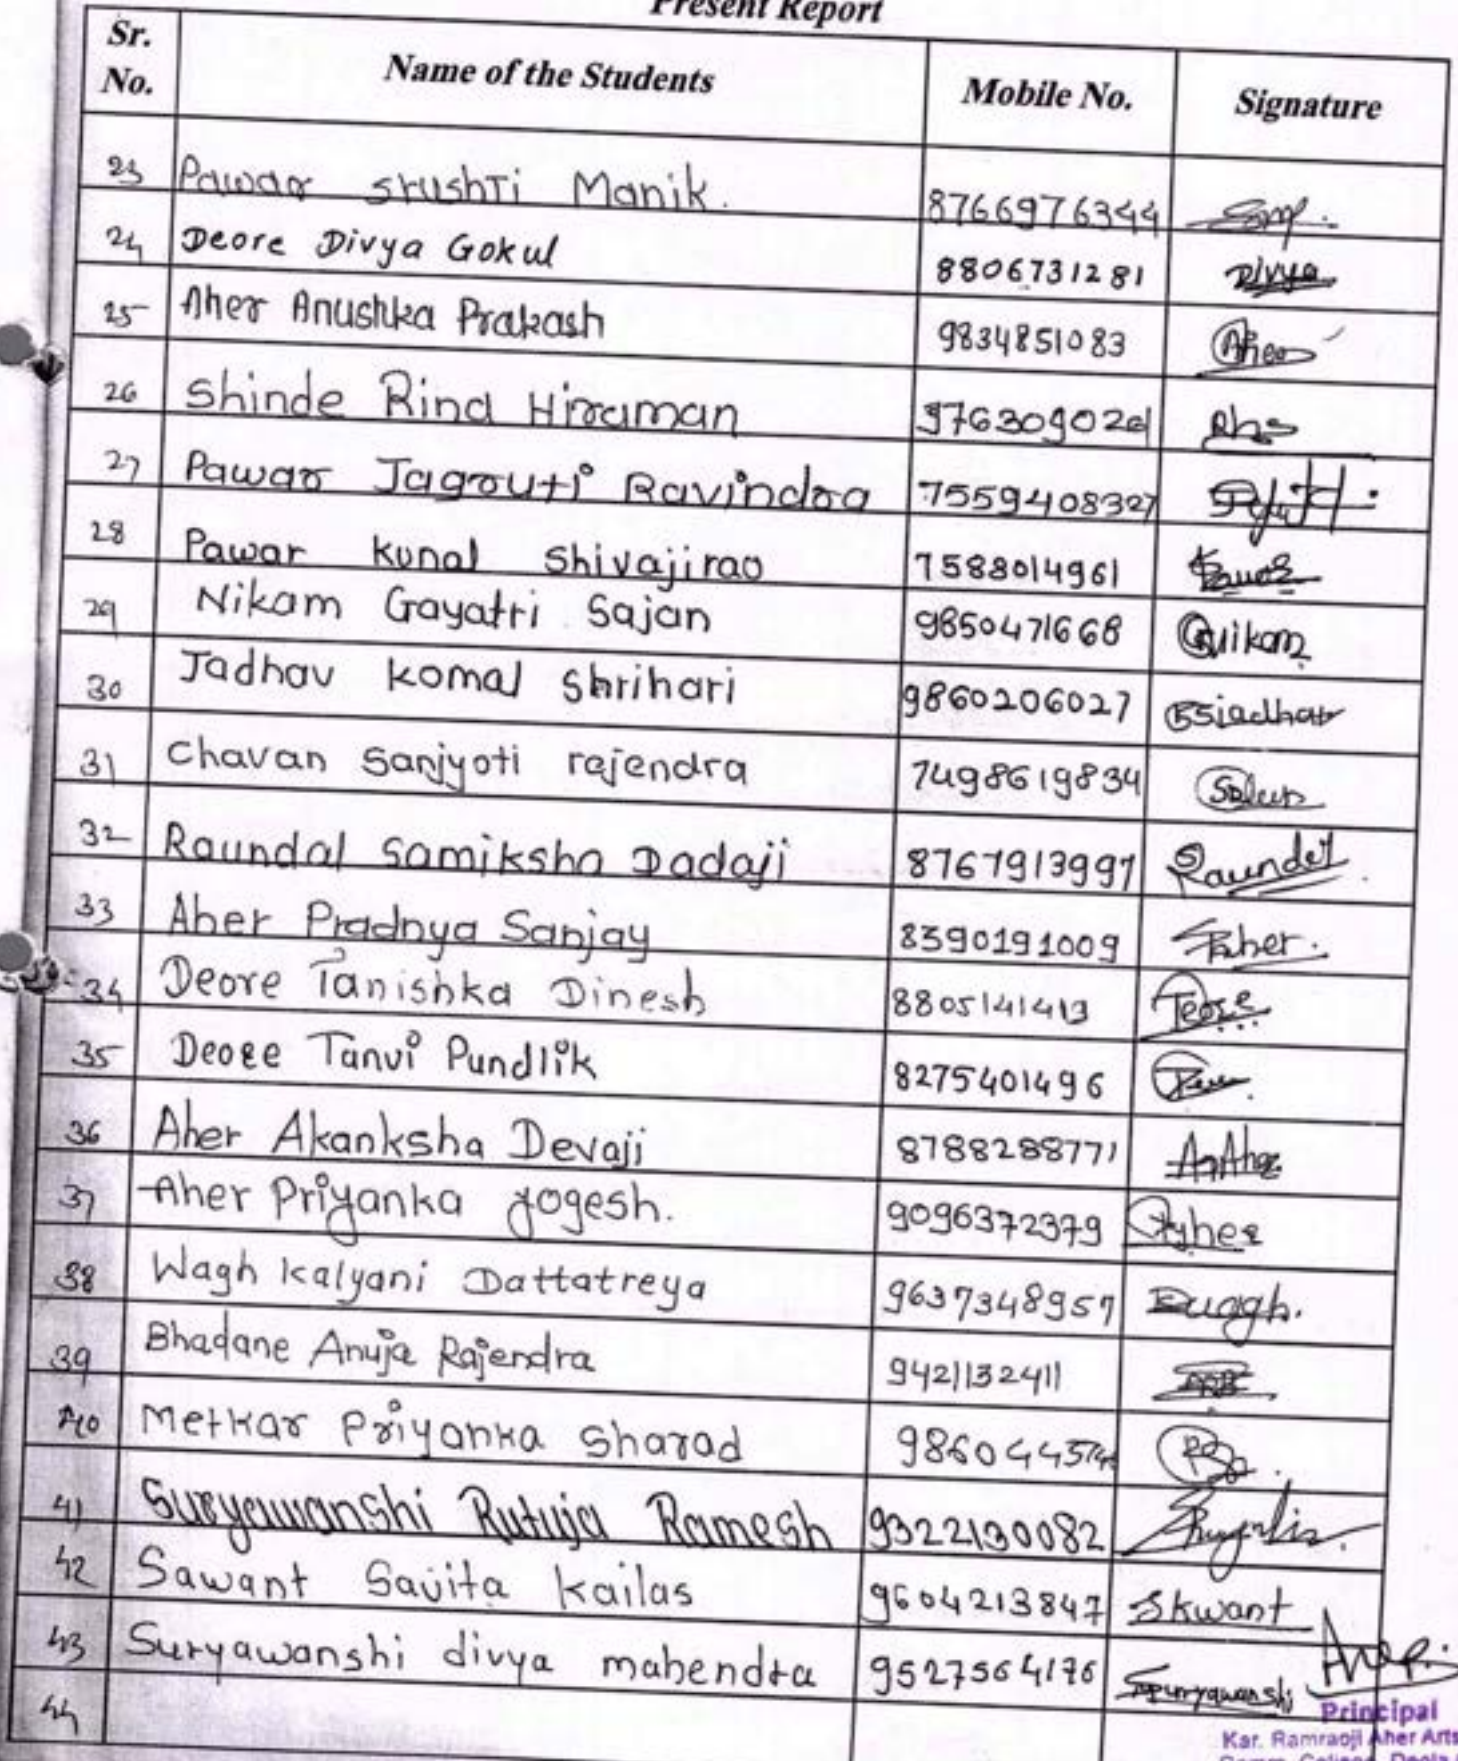 Present Report
Sr. No. Name of the Students Mobile No. Signature
23 Pawar srushti Manik. 8766976344
24 Deore Divya Gokul 8806731281 Divya
25 Aher Anushka Prakash 9834851083 Aher
26 Shinde Rina Hiraman
27 Pawar Jagruti Ravindra 7559408327
28 Pawar Kunal Shivajirao 7588014961
29 Nikam Gayatri Sajan 9850471668 Nikam
30 Jadhav Komal Shrihari 9860206027
31 Chavan Sanjyoti rajendra 7498619834
32 Raundal Samiksha Dadaji 8767913997 Raundal
33 Aher Pradnya Sanjay 8390191009 Aher.
34 Deore Tanishka Dinesh 8805141413
35 Deore Tanvi Pundlik 8275401496
36 Aher Akanksha Devaji 8788288771
37 Aher Priyanka Yogesh. 9096372379
38 Wagh Kalyani Dattatreya 9637348957
39 Bhadane Anuja Rajendra 9421132411
40 Metkar Priyanka Sharad
41 Suryawanshi Rutuja Ramesh 9322130082
42 Sawant Savita Kailas 9604213847 Skwant
43 Suryawanshi divya mahendra 9527564176
44
Principal
Kar. Ramraoji Aher Arts